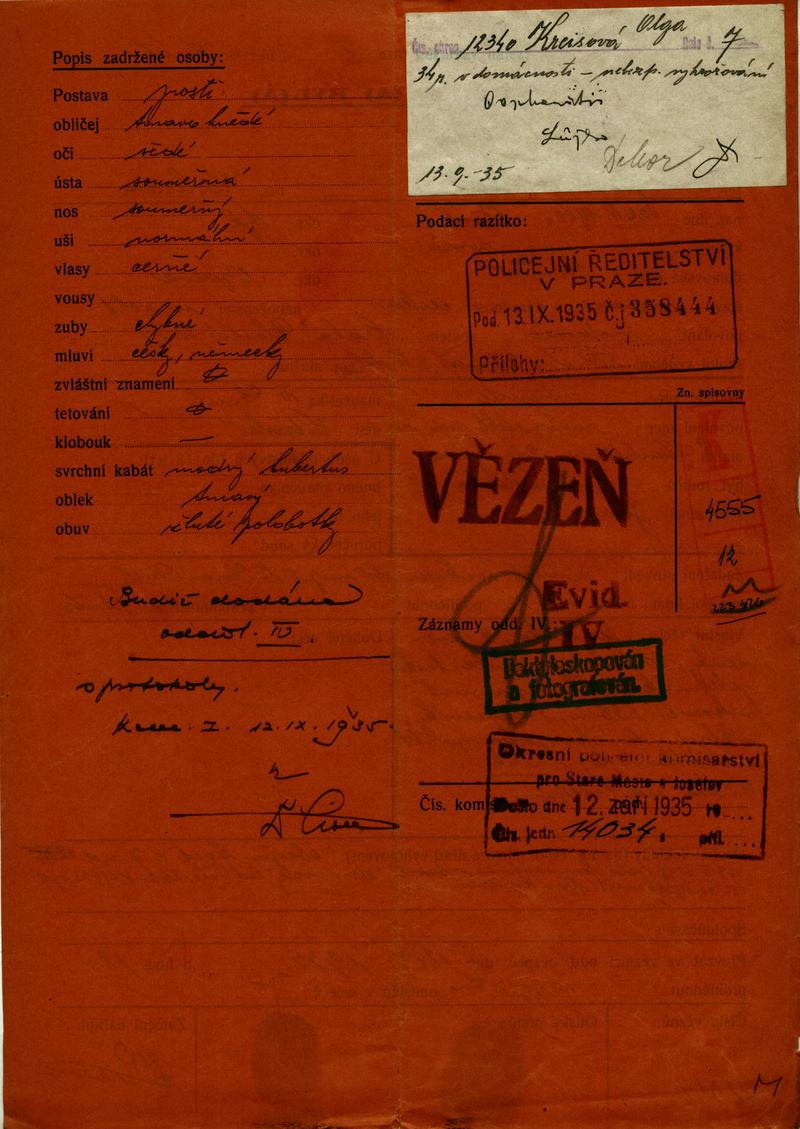 Popis zadržené osoby:
Postava prostř.
obličej tmavo hnědé
oči šedé
ústa souměrná
nos souměrný
uši normální
vlasy černé
vousy
zuby chybné
mluví česky, německy
zvláštní znamení
tetování
klobouk —
svrchní kabát modrý hubertus
oblek tmavý
obuv žluté polobotky
Budiž dodána
IV.
protokoly.
Kom. I. 12.IX.1935.
Čís. chron. 12340 Kreisová Olga 7
34 r. v domácnosti – nebezp. vyhrožování
13.9.-35
Podací razítko:
POLICEJNÍ ŘEDITELSTVÍ
V PRAZE.
Pod. 13.IX.1935 č.j 358444
Přílohy:
Zn. spisovny
VĚZEŇ
4555
12
Evid.
IV
Záznamy odd. IV.:
Daktyloskopován
a fotografován.
Okresní policejní komisařství
pro Staré Město a Josefov
Čís. komis
Došlo dne 12. září 1935 19
Čís. jedn. 14034, příl.